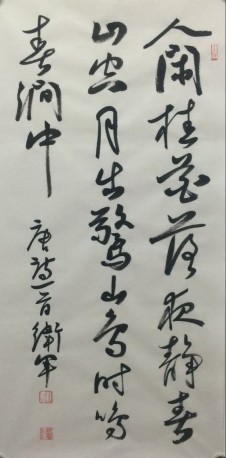 人闲桂花落夜静春
山空月出惊山鸟时鸣
春涧中
唐诗一首卫军